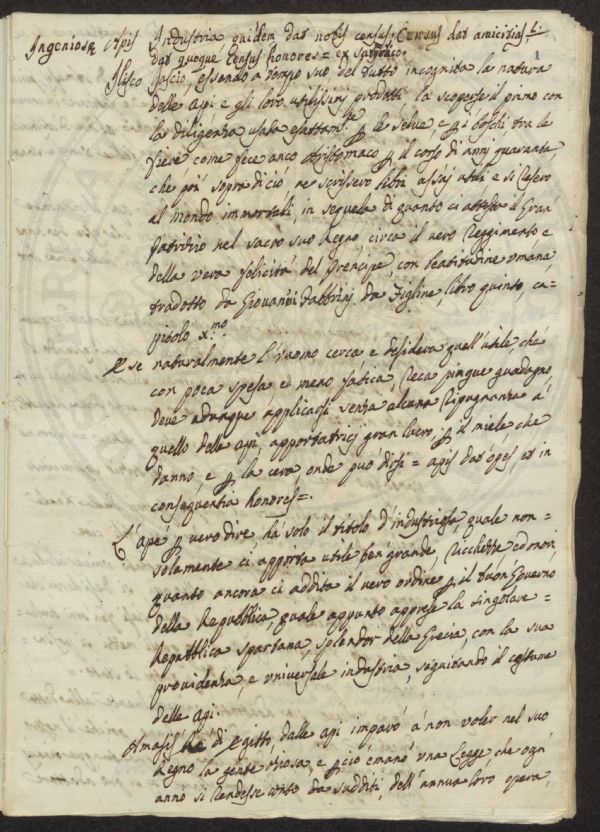 Ingeniosæ Apis Industria quidem dat nobis census, Census dat amicitias,
dat quoque Census honores = ex satirico.
1
Ilisco essendo a tempo suo del tutto incognita la natura
delle Api e gli loro utilissimj prodotti la scoperse il primo con
la diligenza usata esattam.te p le selve e p i boschi tra le
fieve come fece anco Aristomaco p il corso di annj quaranta
che poi sopra di ciò ne scrissero libri assaj utili e si resero
al mondo immortali, in sequela di quanto ci attesta il Gran
Patritio nel sacro suo Regno circa il vero Reggimento e
della vera felicità del Prencipe, con beatitudine omana,
tradotto da Giovannj Fabbrinj da Figline, libro quinto, ca=
pitolo x.mo
E se naturalmente l'uomo cerca e desidera quell'utile, che
con poca spesa e meno fatica, reca pingue guadagno
deve adunque applicarsi senza alcuna ripugnanza à
quello delle api, apportatricj gran lucro, p il miele, che
danno e p la cera onde può dirsi = apis dat opes, et in
consequentia honores =.
L'ape p vero dire, hà solo il titolo d'industriosa, quale non=
solamente ci apporta utile ben grande, ricchezze ed onori
quanto ancora ci addita il vero ordine p il buon Governo
della Repubblica, quale appunto apprese la singolare=
Repubblica spartana, splendor della Grecia, con la sua
providenza, e universale industria, seguitando il costume
delle Api.
Amasis Rè di Egitto, dalle api imparò à non voler nel suo
Regno la gente oziosa, e p ciò emanò una legge che ogn'
anno si rendesse conto da sudditi, dell'annua loro opera,